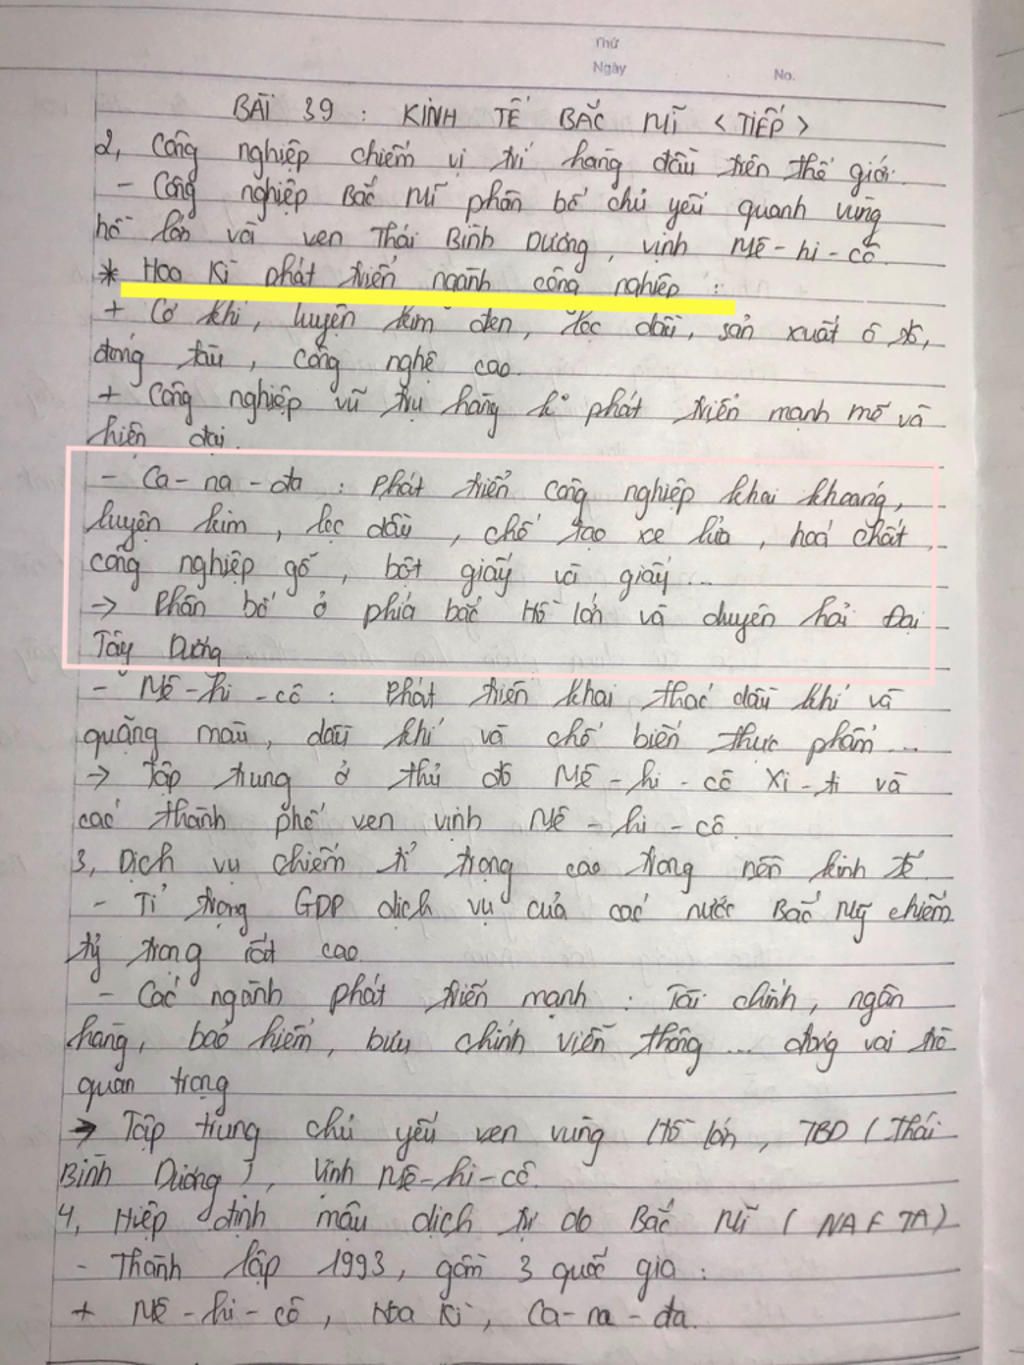 Thứ
Ngày No.
BÀI 39 : KINH TẾ BẮC MĨ < TIẾP >
2, Công nghiệp chiếm vị trí hàng đầu trên thế giới.
- Công nghiệp Bắc Mĩ phân bố chủ yếu quanh vùng
hồ lớn và ven Thái Bình Dương, vịnh Mê-hi-cô.
* Hoa Kì phát triển ngành công nghiệp :
+ Cơ khí, luyện kim đen, lọc dầu, sản xuất ô tô,
đóng tàu, công nghệ cao.
+ Công nghiệp vũ trụ hàng k° phát triển mạnh mẽ và
hiện đại.
- Ca-na-đa : Phát triển công nghiệp khai khoáng,
luyện kim, lọc dầu, chế tạo xe lửa, hoá chất,
công nghiệp gỗ, bột giấy và giấy...
→ Phân bố ở phía bắc Hồ lớn và duyên hải Đại
Tây Dương
- Mê-hi-cô : Phát triển khai thác dầu khí và
quặng màu, dầu khí và chế biến thực phẩm...
→ Tập trung ở thủ đô Mê-hi-cô Xi-ti và
các thành phố ven vịnh Mê-hi-cô.
3, Dịch vụ chiếm tỉ trọng cao trong nền kinh tế.
- Tỉ trọng GDP dịch vụ của các nước Bắc Mỹ chiếm
tỷ trọng rất cao.
- Các ngành phát triển mạnh : Tài chính, ngân
hàng, bảo hiểm, bưu chính viễn thông... đóng vai trò
quan trọng
→ Tập trung chủ yếu ven vùng Hồ lớn, TBD (Thái
Bình Dương), Vịnh Mê-hi-cô.
4, Hiệp định mậu dịch tự do Bắc Mĩ (NAFTA)
- Thành lập 1993, gồm 3 quốc gia :
+ Mê-hi-cô, Hoa Kì, Ca-na-đa.